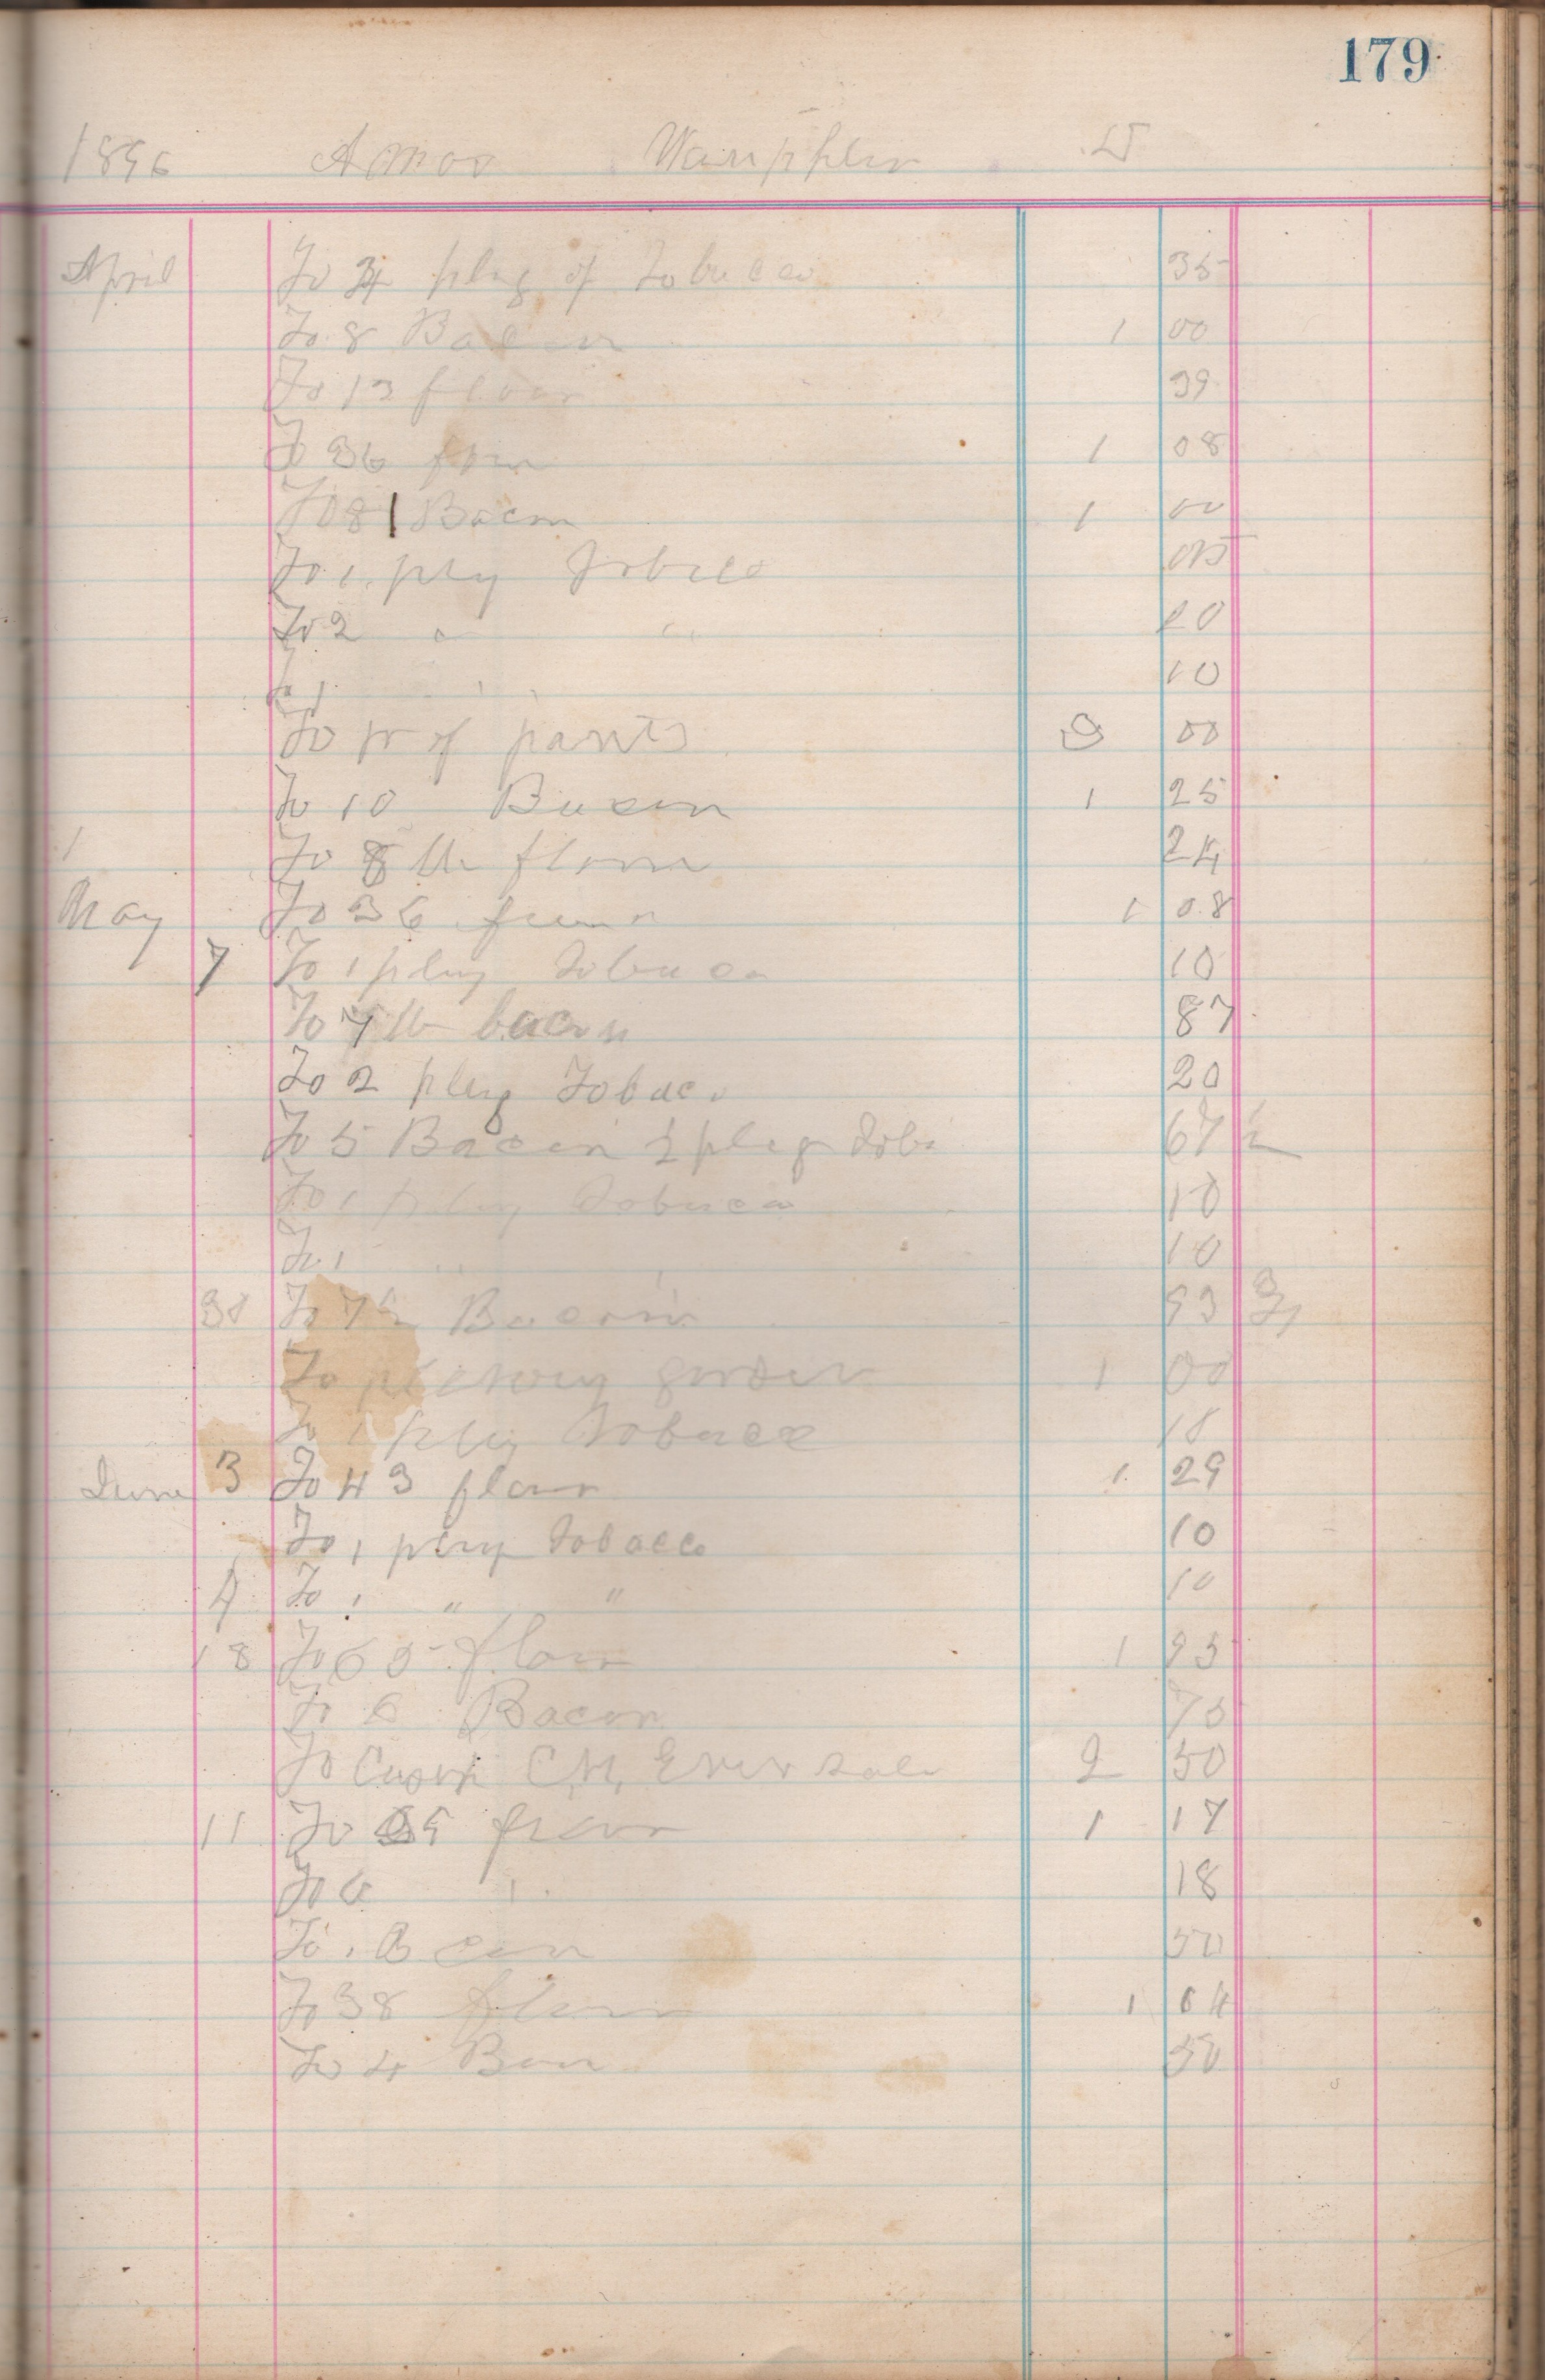 179
1896 Amos Wampler Dr
April To 34 plug of tobacco 35
To 8 Bacon 1 00
To 13 flour 39
To 36 flour 1 08
To 8 Bacon 1 00
To 1 plug Tobaco 05
To 2 " "
1 10
To pr of pants 00
To 10 Bacon 1 25
To 8 lb flour 24
May To 36 flour 1 08
7 To 1 plug tobaco 10
To 7 lb bacon 87
To 2 plug Tobaco 20
To 5 Bacon 1/2 plug tobo 67 1/2
To 1 plug tobaco 10
To 1 " " 10
To 7 1/2 Bacon 93 3/4
To garden 1 00
To 1 plug Tobacco
June 3 To 43 flour 1 29
To 1 plug tobacco 10
4 To 1 " " 10
18 To 65 flour 1 95
To 6 Bacon 75
To C.H. 2 50
11 To flour 1 17
To 6 " 18
To 50
To 38 flour 1 04
To 4 Bacon 50